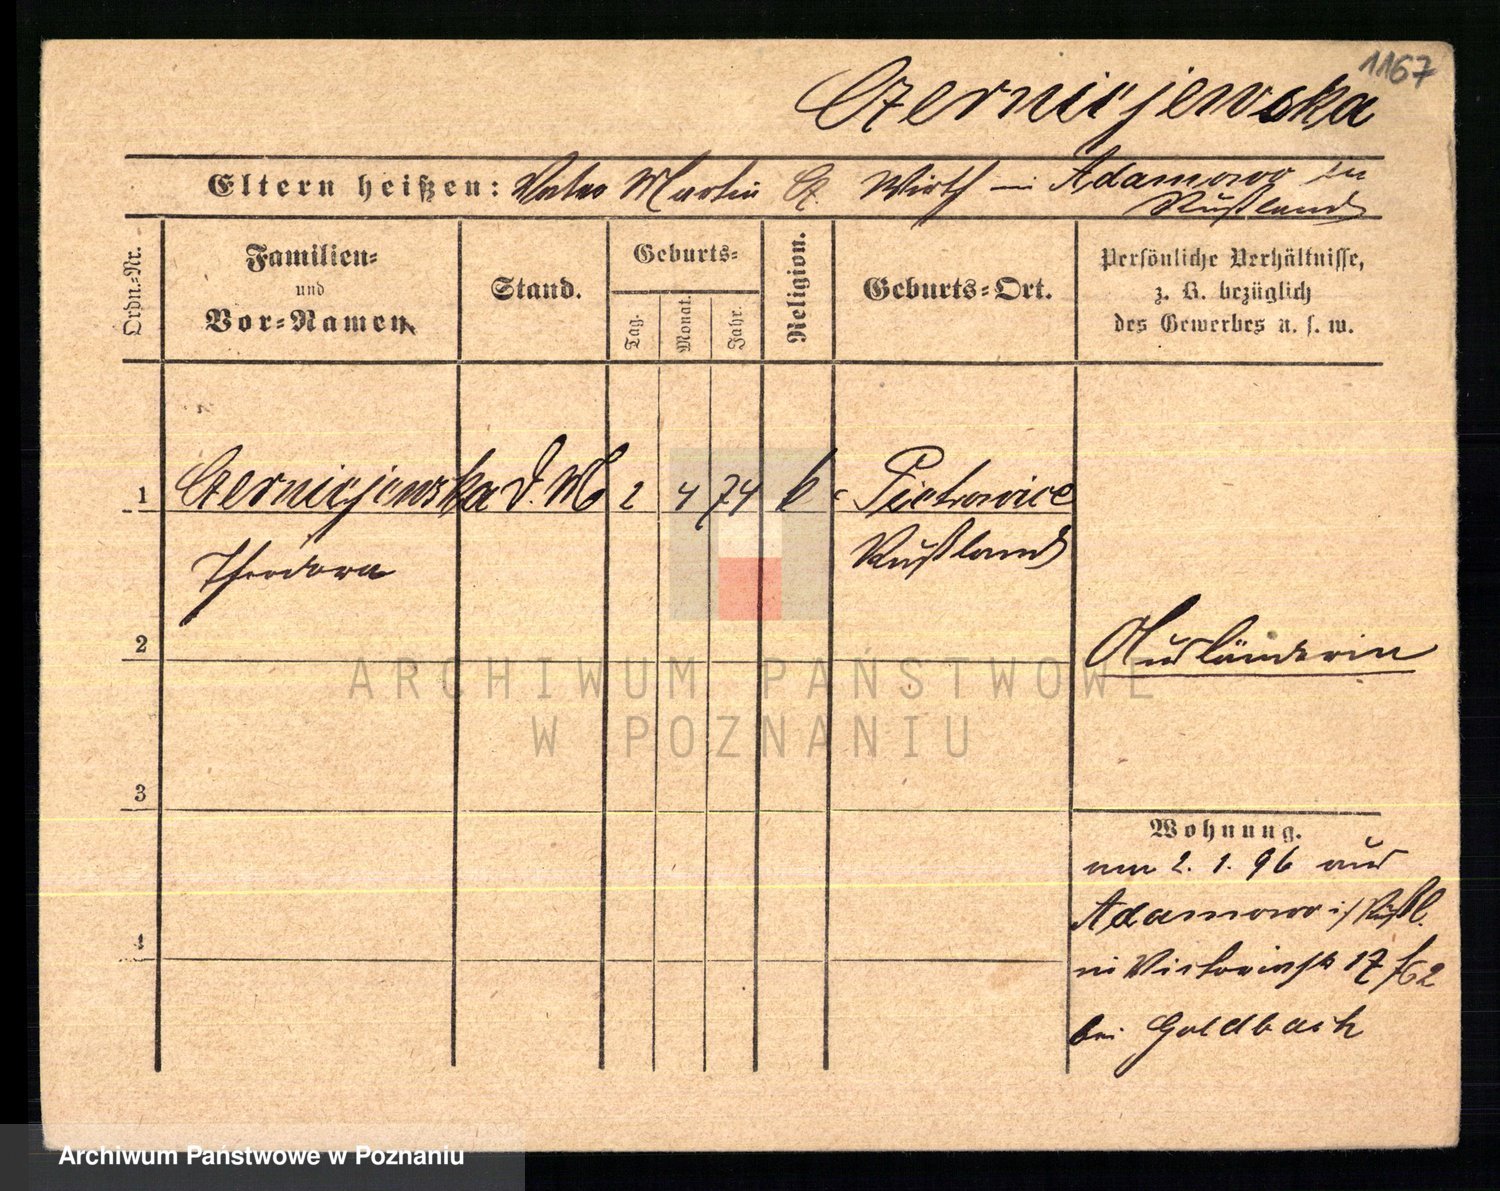 1167
Czerniejewska
Eltern heißen: Vater Martin Cz. Wirth in Adamowo in
Rußland
Ordn.-Nr.
Familien-
und
Vor-Namen
Stand.
Geburts-
Tag.
Monat.
Jahr.
Religion.
Geburts-Ort.
Persönliche Verhältnisse,
z. B. bezüglich
des Gewerbes u. s. w.
1 Czerniejewska d. M 2 4 74 k Pietrowice
Theodora Rußland
2
Ausländerin
ARCHIWUM PAŃSTWOWE
W POZNANIU
3
Wohnung.
am 2. 1. 96 aus
Adamowo i/ Rußl.
4
in Victoriastr 17
bei Goldbach
Archiwum Państwowe w Poznaniu